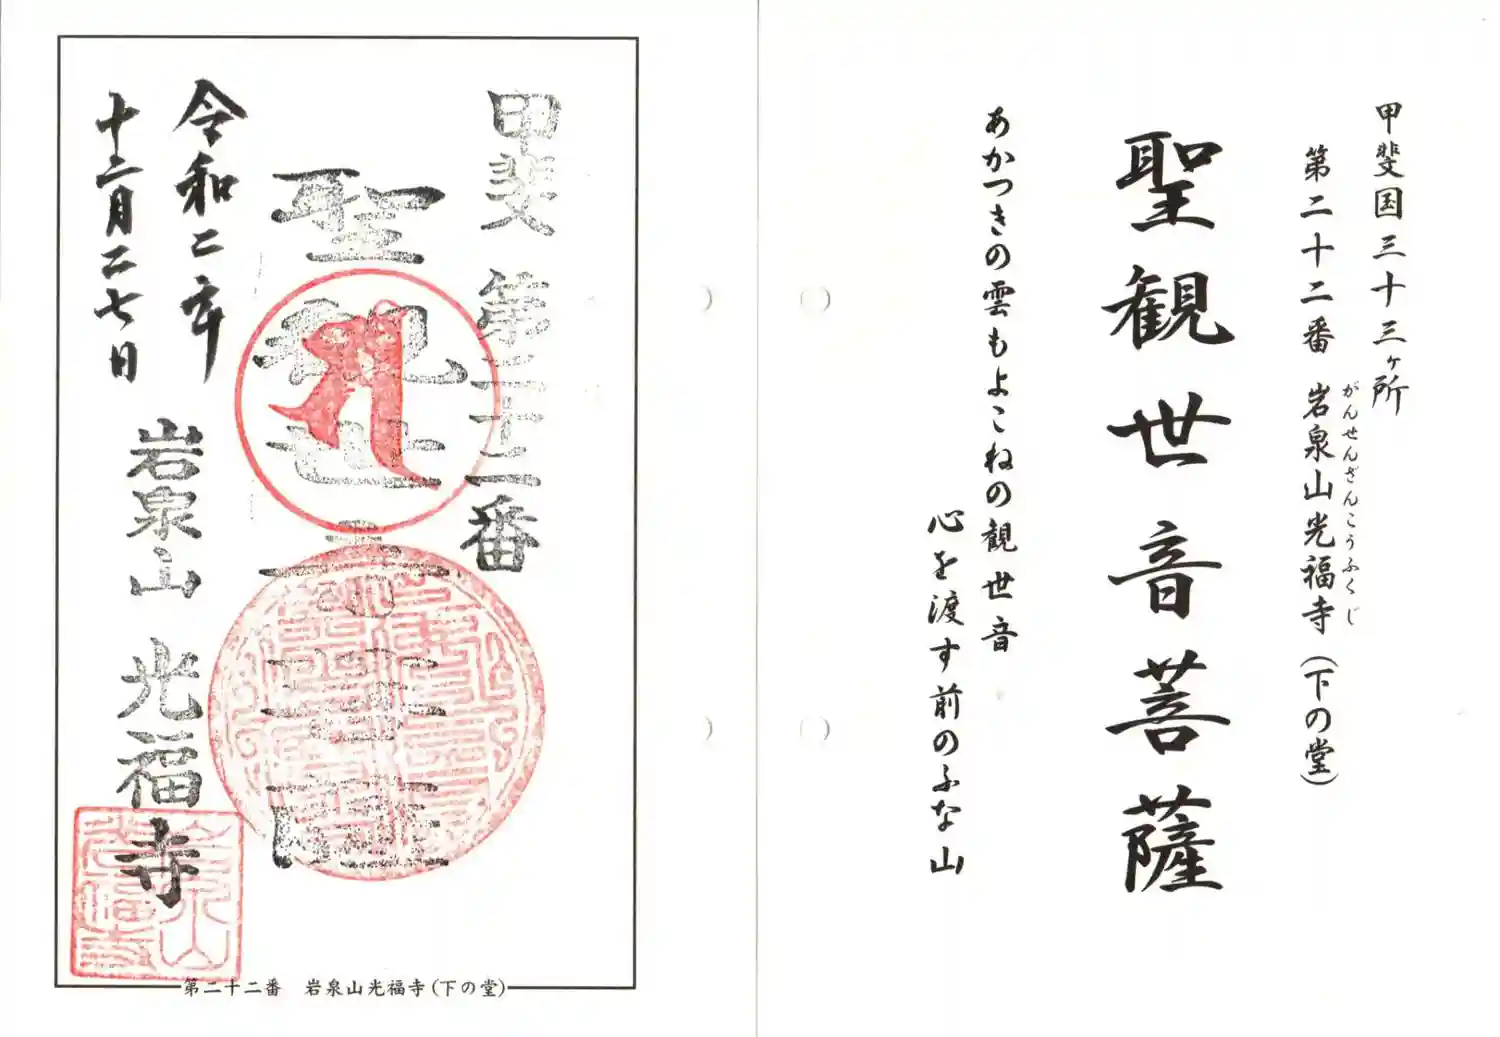 甲斐国三十三ヶ所
第二十二番 岩泉山光福寺(下の堂)
がんせんざんこうふくじ
聖観世音菩薩
あかつきの雲もよこねの観世音
心を渡す前のふな山
甲斐 第二十二番
聖観世音菩薩
令和二年
十二月二七日
岩泉山 光福寺
第二十二番 岩泉山光福寺(下の堂)